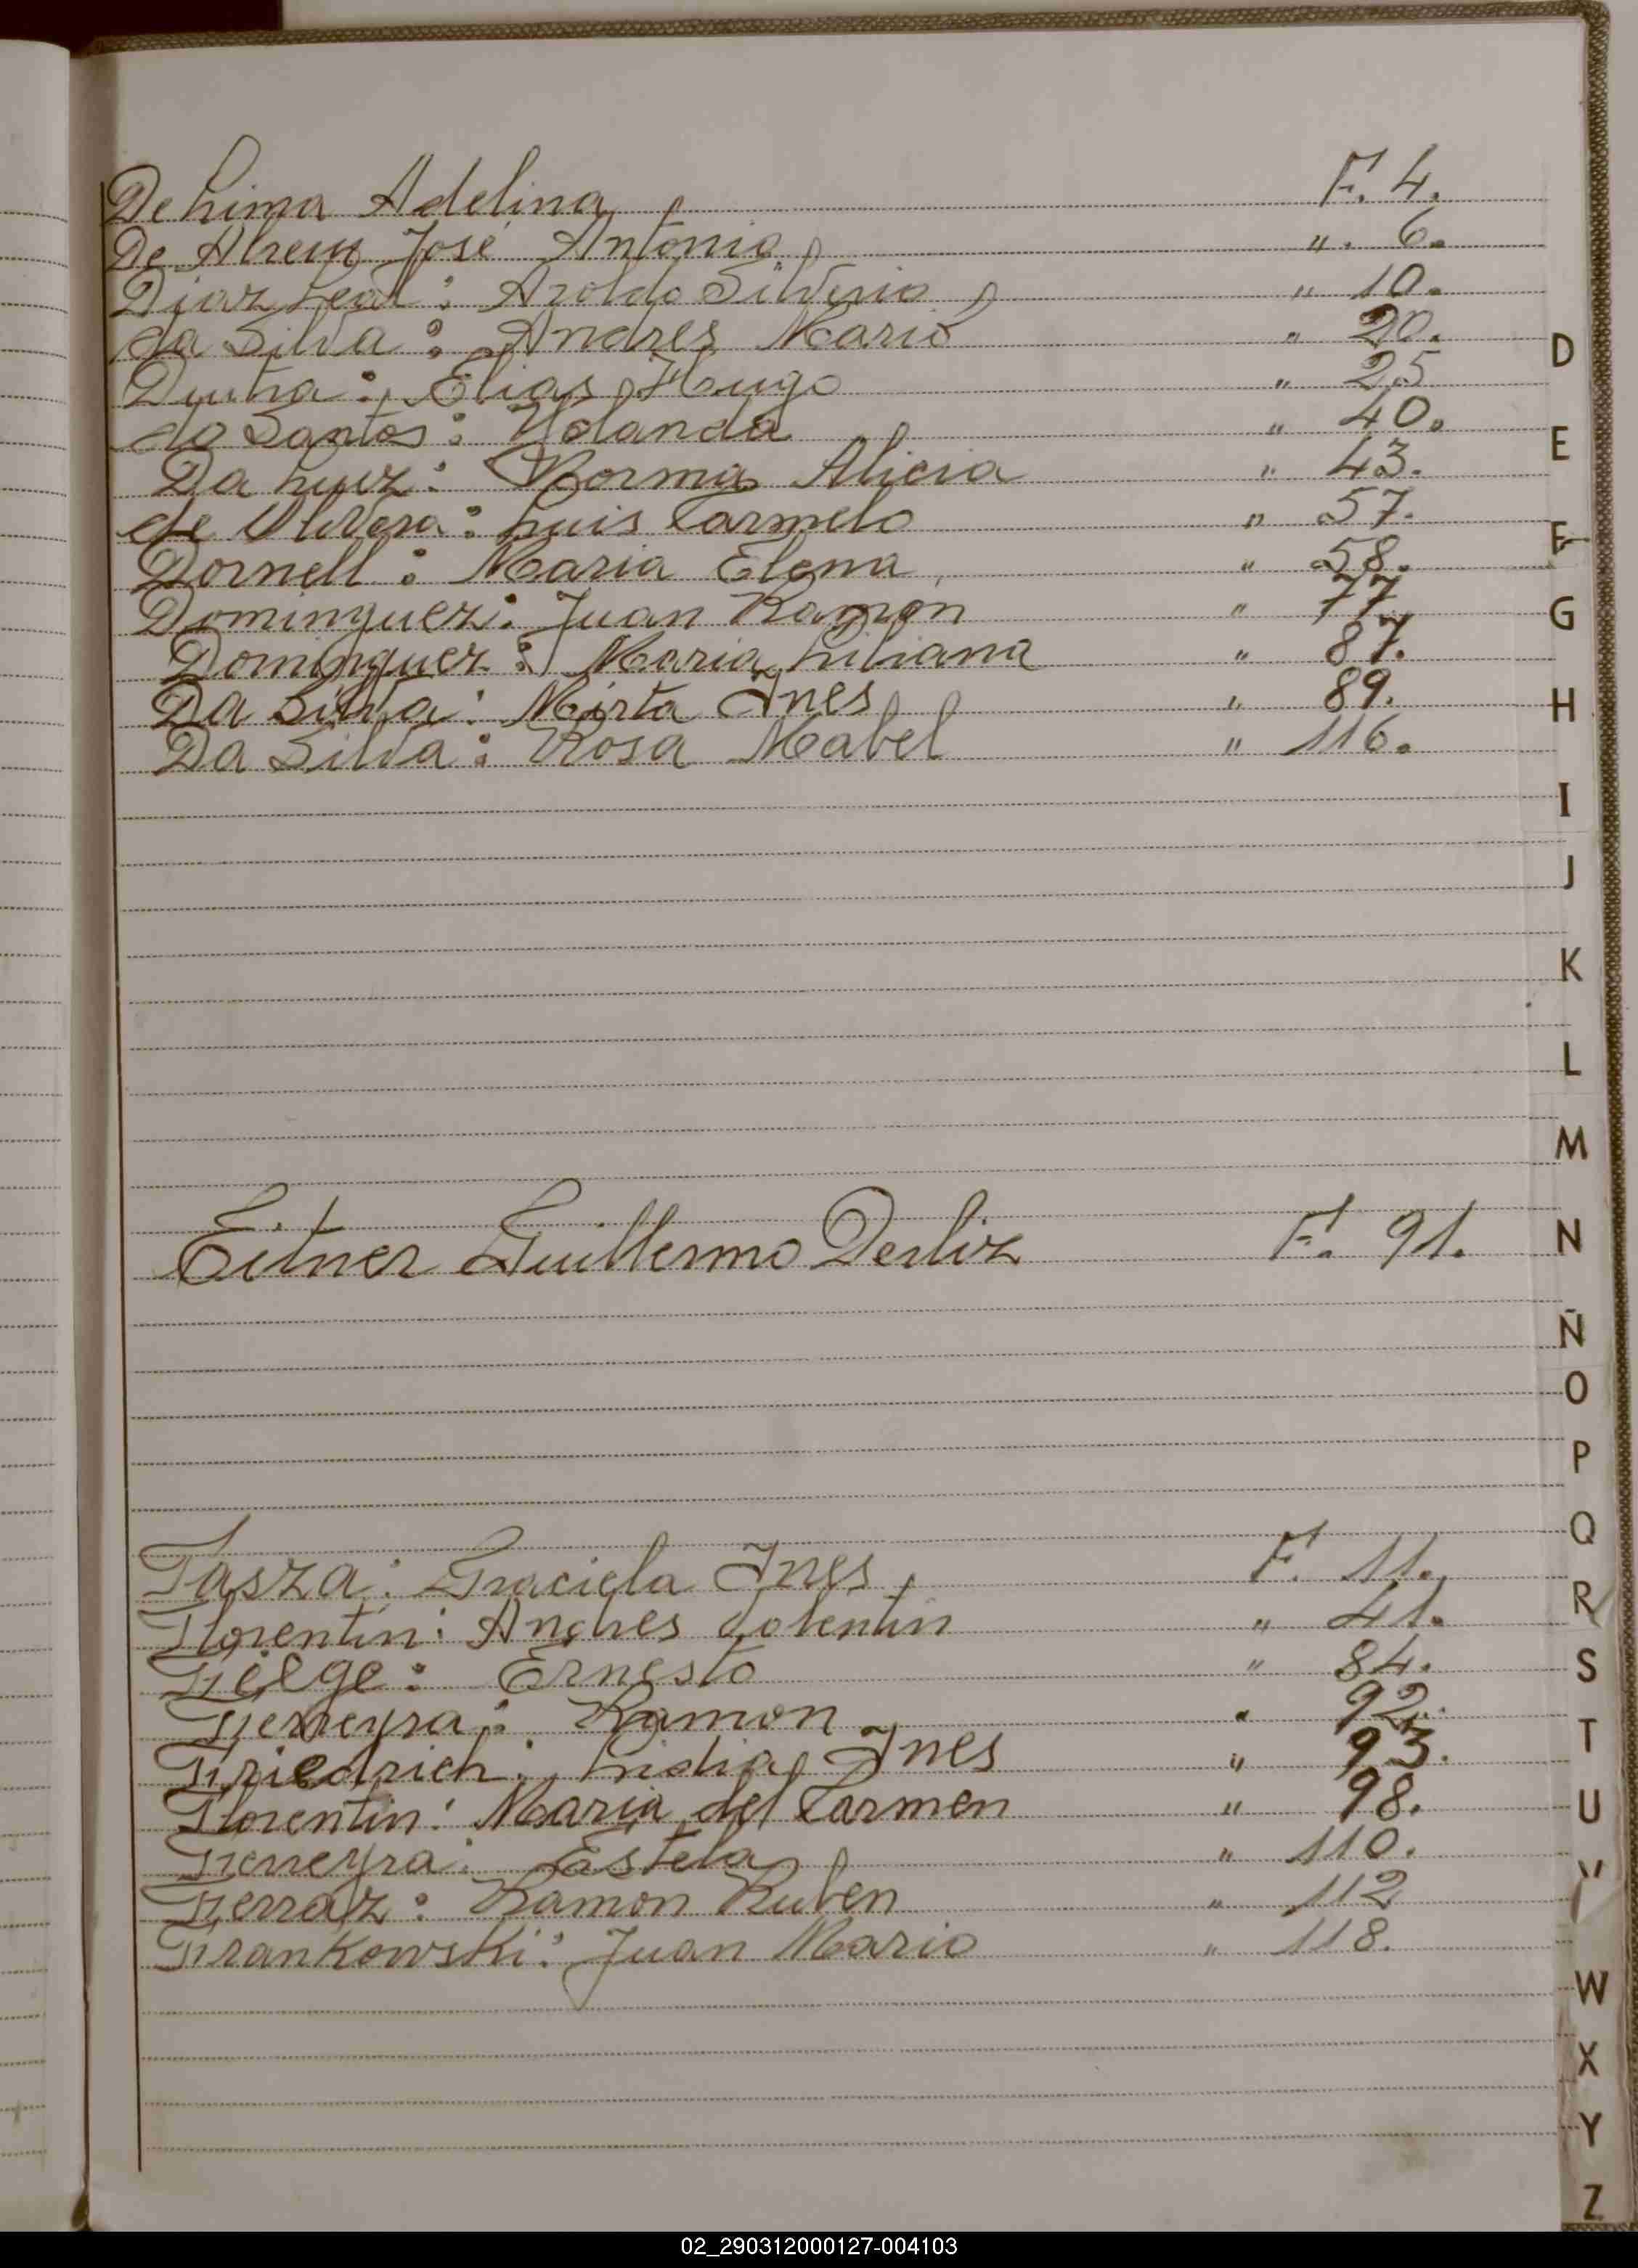 De Lima Adelina F. 4.
De Abreu José Antonio „. 6.
Diaz Leal: Aroldo Silverio „ 10.
da Silva: Andres Mario „ 20.
Dutra: Elias Hugo „ 25
do Santos: Yolanda „ 40.
Da Luz: Norma Alicia „ 43.
de Olivera: Luis Carmelo „ 57.
Dornell: Maria Elena „ 58.
Dominguez: Juan Ramón „ 77.
Dominguez: Maria Liliana „ 87.
Da Silva: Mirta Ines „ 89.
Da Silva: Rosa Mabel „ 116.
Eitner Guillermo Derliz F. 91.
Fasza: Graciela Ines F. 11.
Florentin: Andres Tolentin „ 41.
Feege: Ernesto „ 84.
Ferreyra: Ramon „ 92.
Friedrich: Lidia Ines „ 93.
Florentin: Maria del Carmen „ 98.
Ferreyra: Estela „ 110.
Ferraz: Ramon Ruben „ 112
Frankowski: Juan Mario „ 118.
D
E
F
G
H
I
J
K
L
M
N
Ñ
O
P
Q
R
S
T
U
V
W
X
Y
Z
02_290312000127-004103